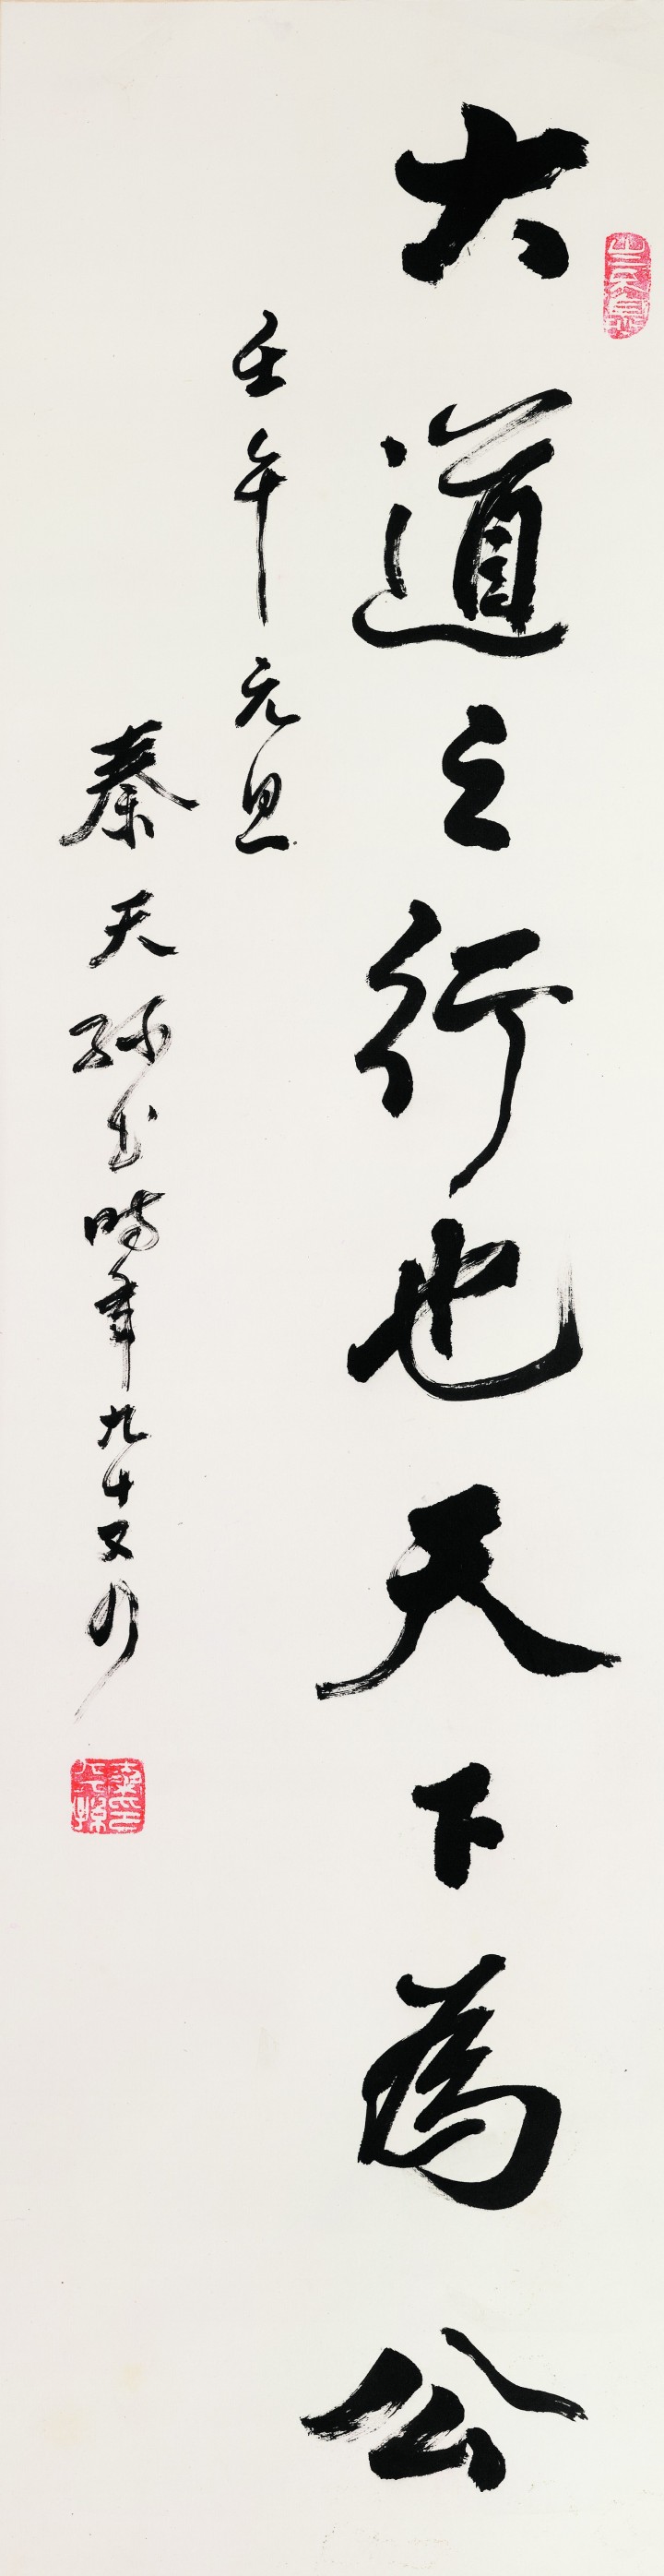 大道之行也天下為公
壬午元旦
秦天孫书時年九十又八